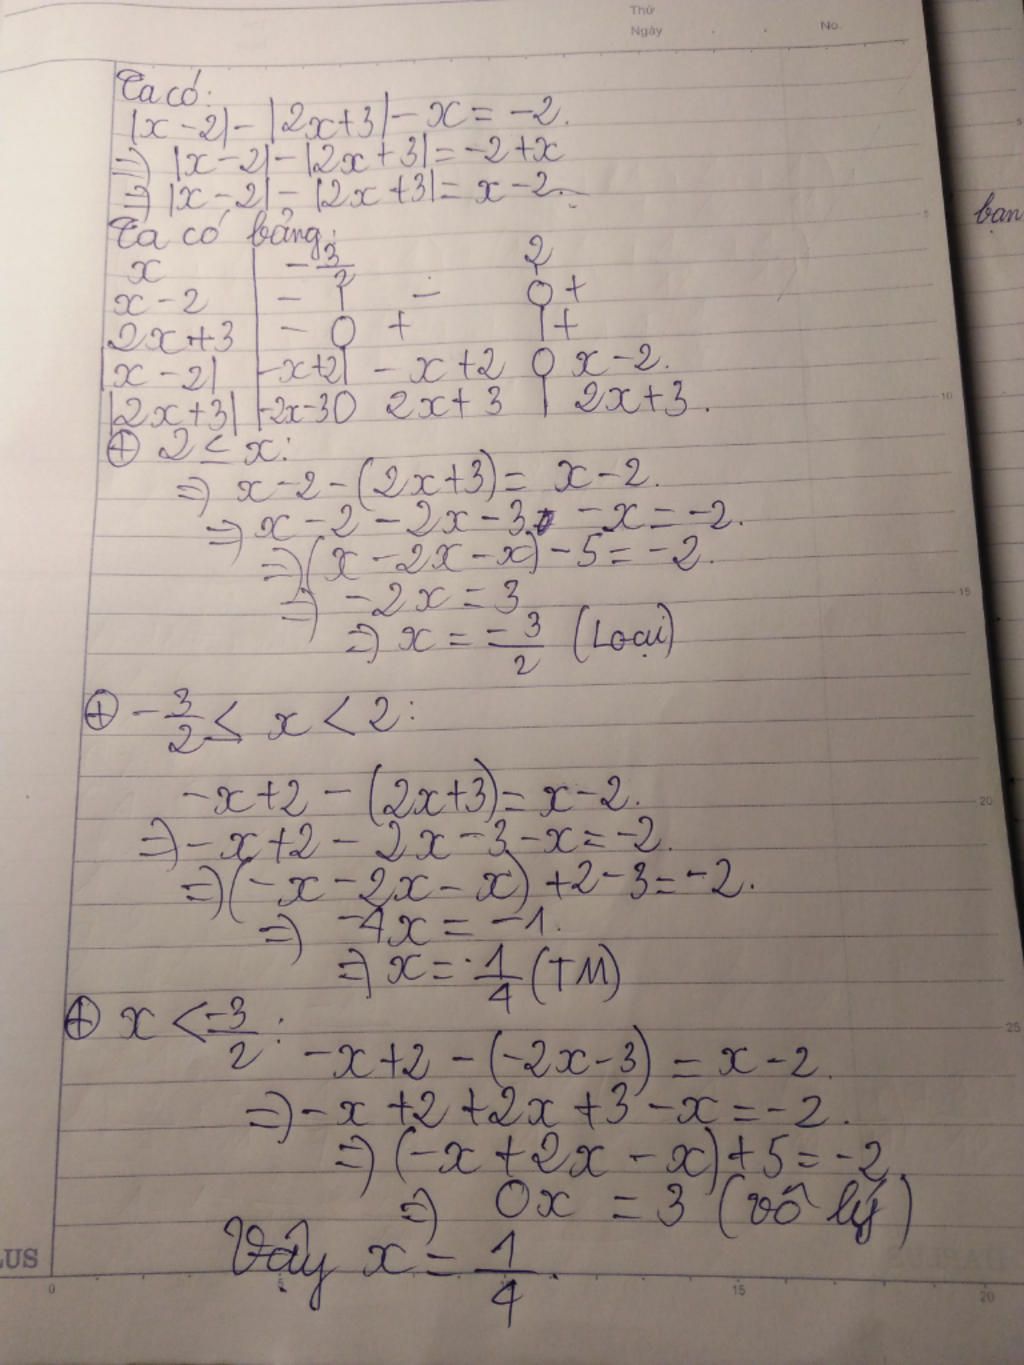 Thứ
Ngày . . No.
Ta có:
|x-2| - |2x+3| - x = -2.
=> |x-2| - |2x+3| = -2+x
=> |x-2| - |2x+3| = x-2.
bạn
Ta có bảng:
x | -3/2 2
x-2 | - | - 0 +
2x+3 | - 0 + | +
|x-2| | -x+2 | -x+2 0 x-2.
|2x+3| | -2x-3 0 2x+3 | 2x+3.
⊕ 2 ≤ x:
=> x-2-(2x+3) = x-2.
=> x-2-2x-3 -x = -2.
=> (x-2x-x)-5 = -2.
=> -2x = 3
=> x = -3/2 (Loại)
⊕ -3/2 ≤ x < 2:
-x+2-(2x+3) = x-2.
=> -x+2-2x-3-x = -2.
=> (-x-2x-x)+2-3 = -2.
=> -4x = -1.
=> x = 1/4 (TM)
⊕ x < -3/2:
-x+2-(-2x-3) = x-2.
=> -x+2+2x+3-x = -2.
=> (-x+2x-x)+5 = -2.
=> 0x = 3 (vô lý)
Vậy x = 1/4.
LUS
5
10
15
20
25
0 5 15 20